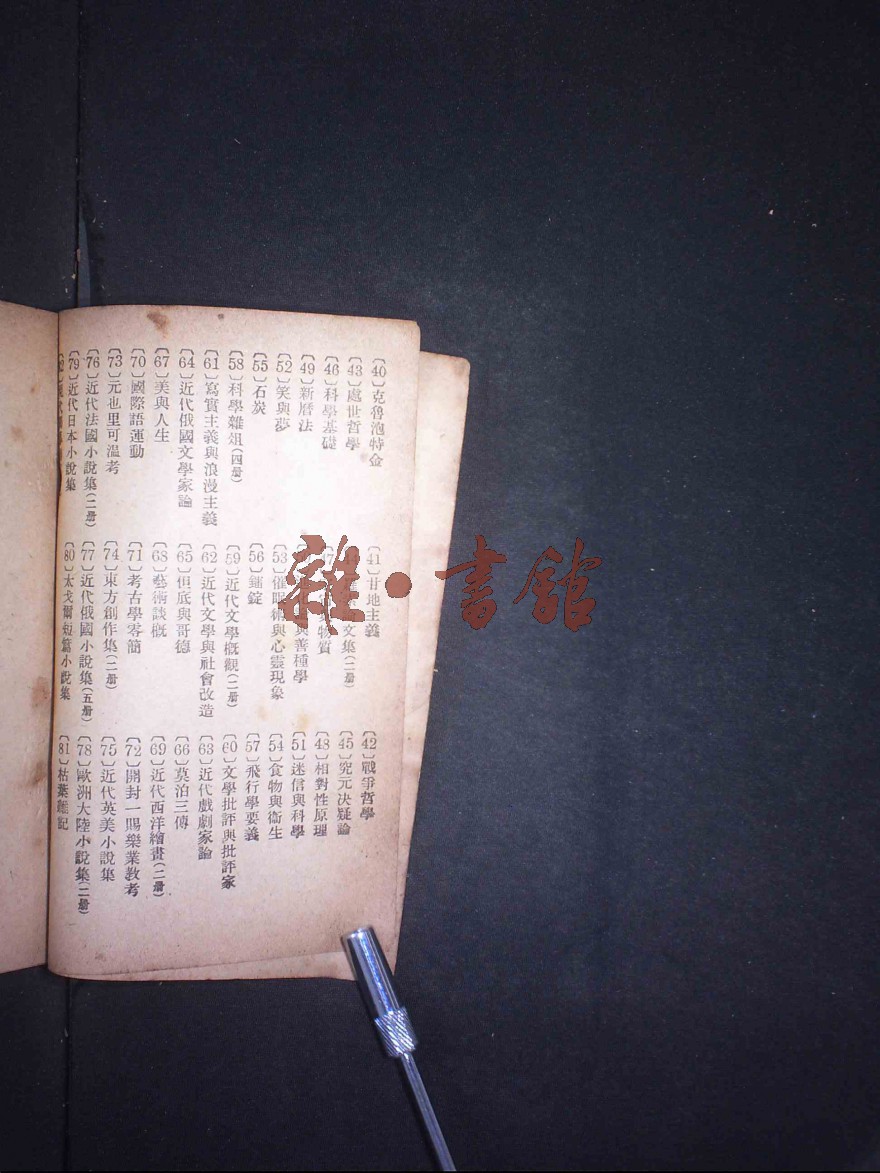 〔40〕克魯泡特金
〔41〕甘地主義
〔42〕戰爭哲學
〔43〕處世哲學
文集(二册)
〔45〕究元决疑論
〔46〕科學基礎
物質
〔48〕相對性原理
〔49〕新曆法
與善種學
〔51〕迷信與科學
〔52〕笑與夢
〔53〕催眠術與心靈現象
〔54〕食物與衞生
〔55〕石炭
〔56〕鐳錠
〔57〕飛行學要義
〔58〕科學雜俎(四册)
〔59〕近代文學概觀(二册)
〔60〕文學批評與批評家
〔61〕寫實主義與浪漫主義
〔62〕近代文學與社會改造
〔63〕近代戲劇家論
〔64〕近代俄國文學家論
〔65〕但底與哥德
〔66〕莫泊三傳
〔67〕美與人生
〔68〕藝術談概
〔69〕近代西洋繪畫(二册)
〔70〕國際語運動
〔71〕考古學零簡
〔72〕開封一賜樂業敎考
〔73〕元也里可溫考
〔74〕東方創作集(二册)
〔75〕近代英美小說集
〔76〕近代法國小說集(二册)
〔77〕近代俄國小說集(五册)
〔78〕歐洲大陸小說集(二册)
〔79〕近代日本小說集
〔80〕太戈爾短篇小說集
〔81〕枯葉雜記
雜·書館